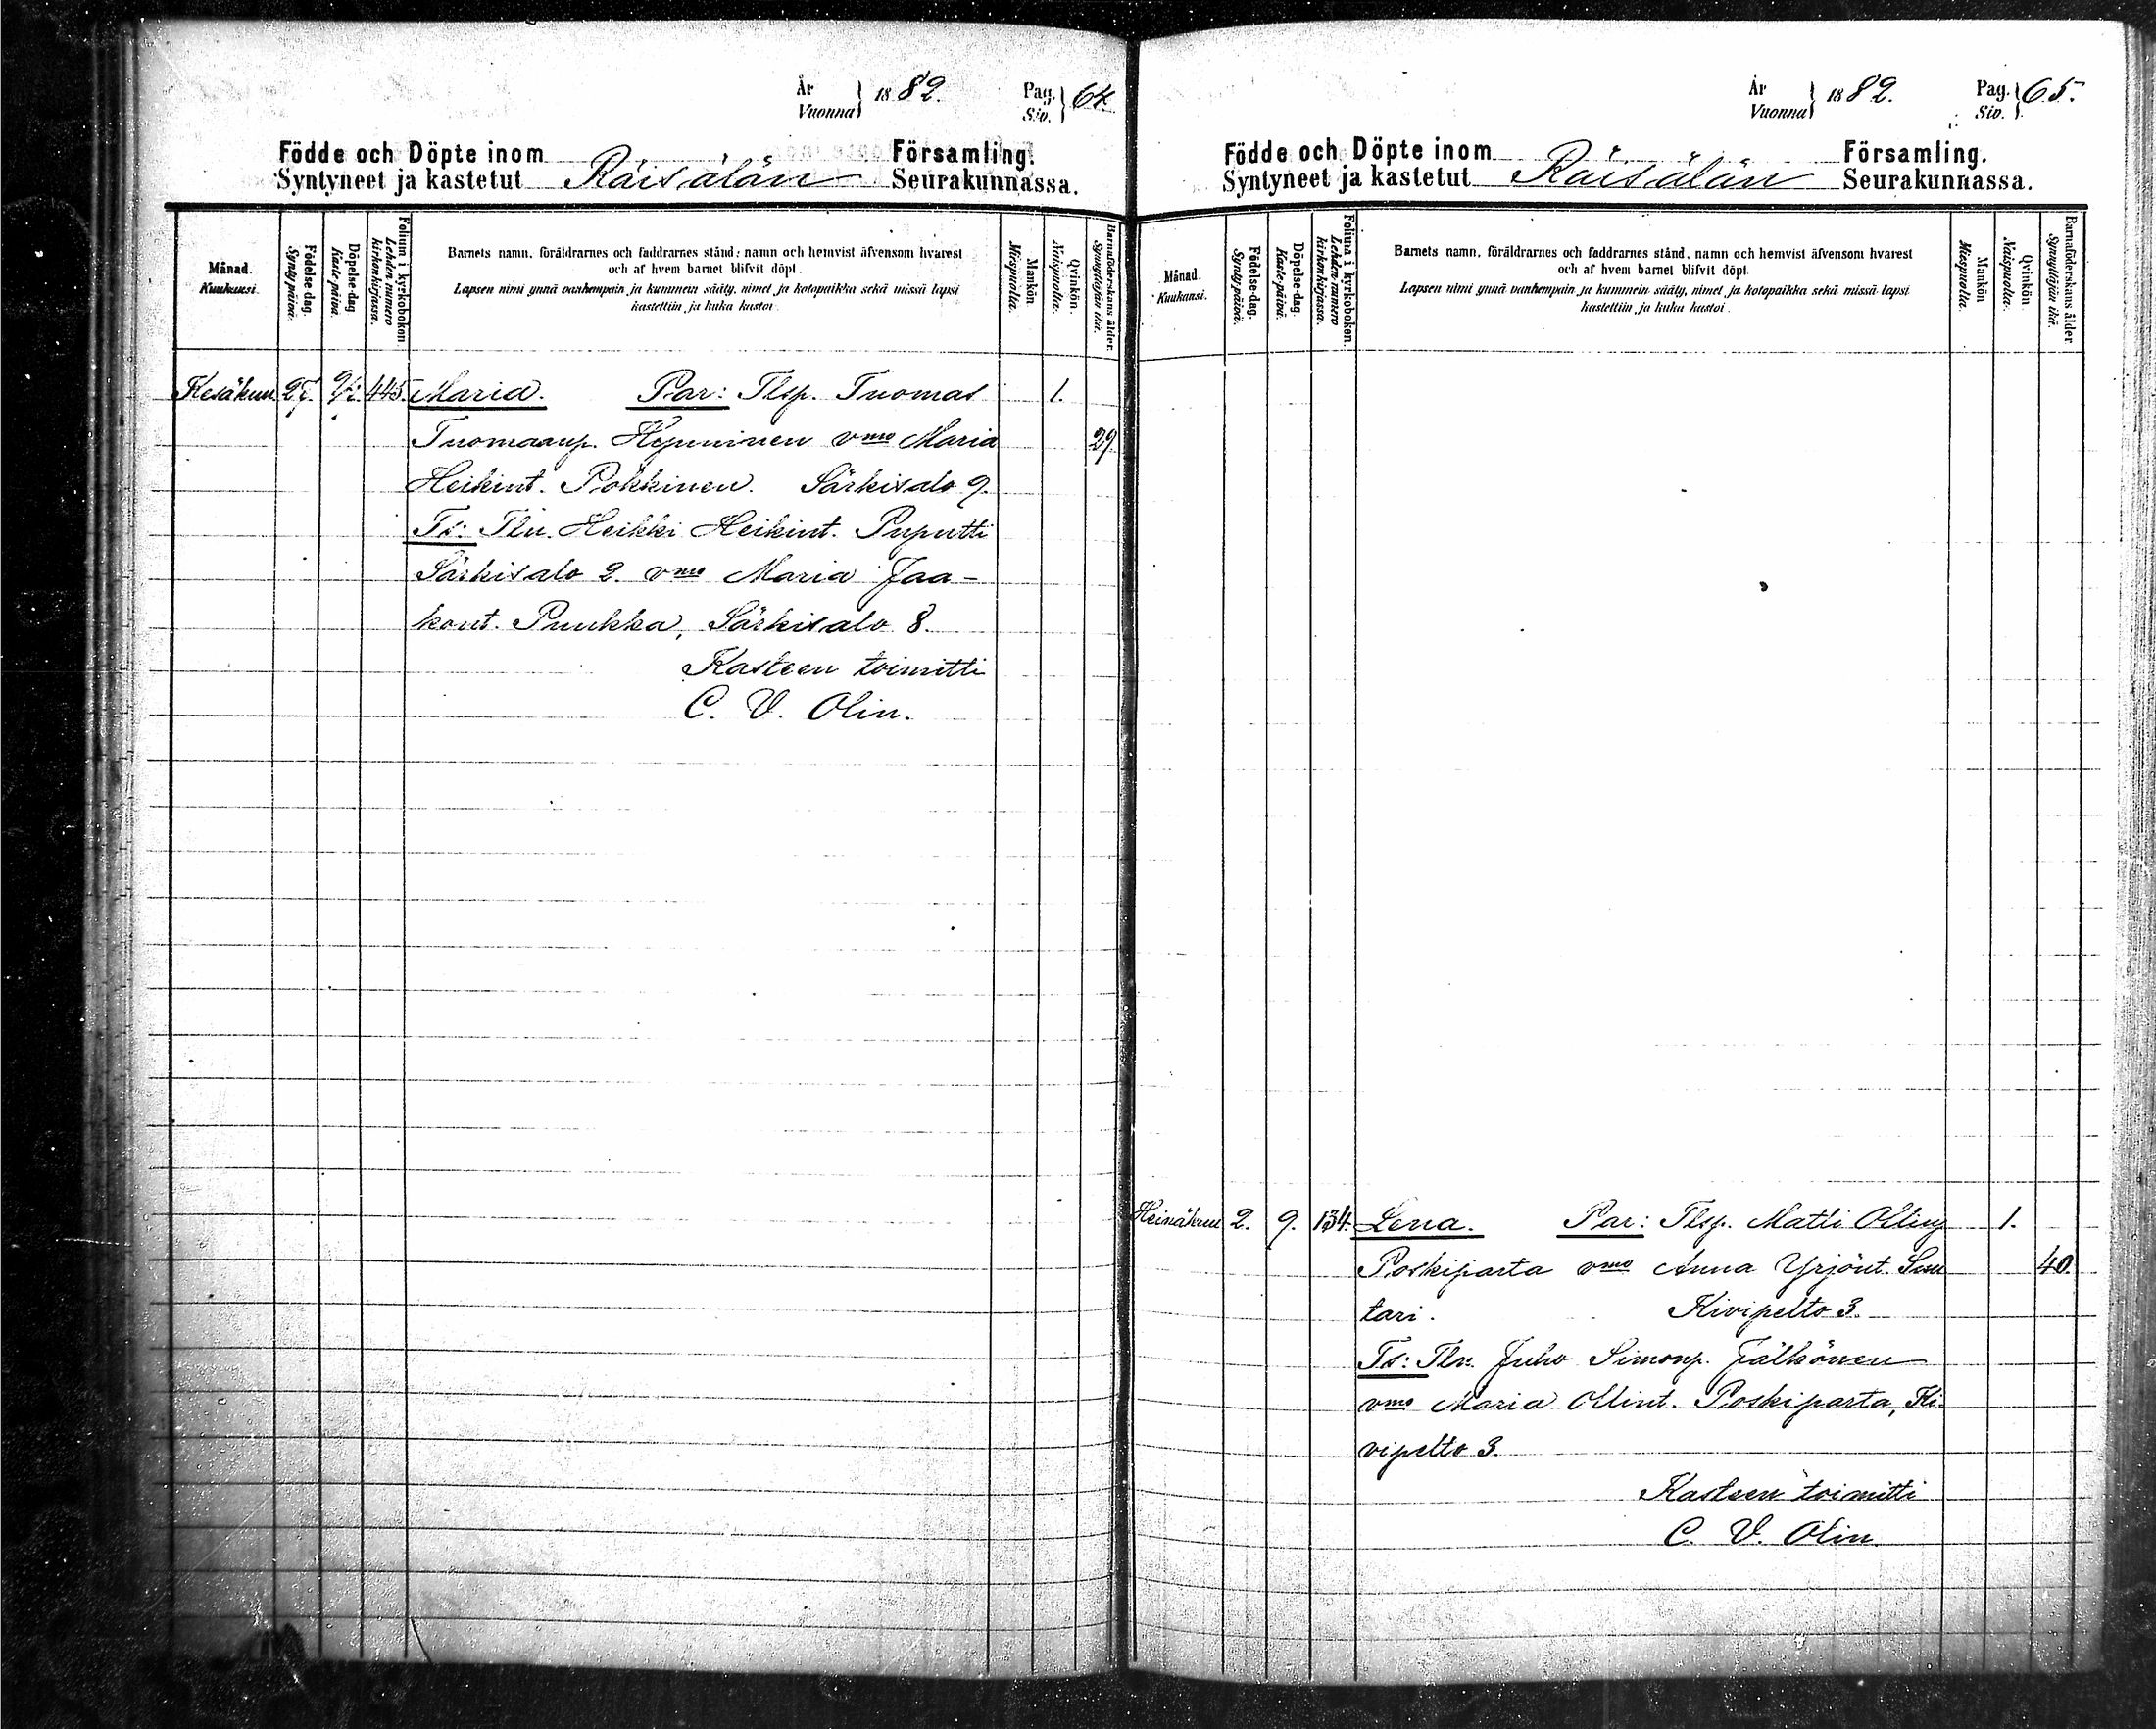 År
Vuonna } 1882.
Pag.
Siv. } 64.
Födde och Döpte inom
Syntyneet ja kastetut Räisälän
Församling.
Seurakunnassa.
Månad.
Kuukausi.
Födelse-dag.
Syntypäivä.
Döpelse-dag
Kaste-päivä.
Folium i kyrkobokon.
Lehden numero
kirkonkirjassa.
Barnets namn, föräldrarnes och faddrarnes stånd, namn och hemvist äfvensom hvarest
och af hvem barnet blifvit döpt.
Lapsen nimi ynnä vanhempain ja kummein sääty, nimet ja kotopaikka sekä missä lapsi
kastettiin, ja kuka kastoi.
Mankön
Miespuolia.
Qvinkön.
Naispuolia.
Barnaföderskans ålder.
Synnyttäjän ikä.
Kesäkuu 27. 445. Maria. Par: Tlsp. Tuomas 1.
Tuomaanp. Hynninen vmo Maria 29.
Heikint. Pokkinen. Särkisalo 9.
Ts: Tln. Heikki Heikint. Puputti
Särkisalo 2. vmo Maria Jaa-
kont. Puukka, Särkisalo 8.
Kasteen toimitti
C. V. Olin.
År
Vuonna } 1882.
Pag.
Siv. } 65.
Födde och Döpte inom
Syntyneet ja kastetut Räisälän
Församling.
Seurakunnassa.
Månad.
Kuukausi.
Födelse-dag.
Syntypäivä.
Döpelse-dag.
Kaste-päivä.
Folium i kyrkobokon.
Lehden numero
kirkonkirjassa.
Barnets namn, föräldrarnes och faddrarnes stånd, namn och hemvist äfvensom hvarest
och af hvem barnet blifvit döpt.
Lapsen nimi ynnä vanhempain ja kummein sääty, nimet ja kotopaikka sekä missä lapsi
kastettiin, ja kuka kastoi.
Mankön
Miespuolia.
Qvinkön.
Naispuolia.
Barnaföderskans ålder
Synnyttäjän ikä.
Heinäkuu 2. 9. 134. Lena. Par: Tlsp. Matti Ollinp 1.
Poskiparta vmo Anna Yrjönt. Suu 40.
tari. Kivipelto 3.
Ts: Tln. Juho Simonp. Jälkönen
vmo Maria Ollint. Poskiparta, Ki-
vipelto 3.
Kasteen toimitti
C. V. Olin